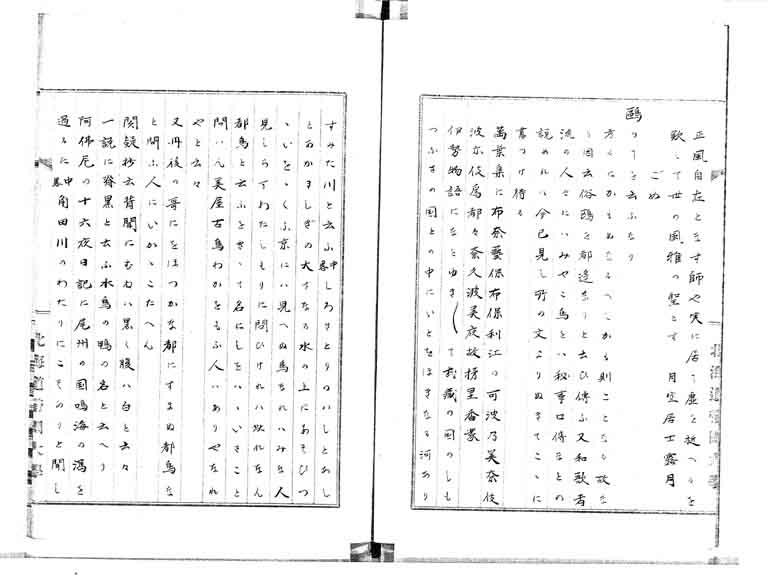 正風自在とます師や実に居て虚を放つを
歌して世の風雅の聖とす 月空居士露月
ごめ
鷗
のことを云ふなり
方々にかもめなるへつから別ことなり故な
り因云俗鷗を都邊なりと云ひ傳ふ又和歌者
流の人々にハみやこ鳥とハ秘事口傳なとの
説あれハ今已見し所の文よりぬきてこゝに
書つけ侍る
萬葉集に布奈藝保布保利江の可波乃美奈伎
波尓伎為都々奈久波美夜故杼里香蒙
伊勢物語になとゆき〱て武蔵の国としも
つふさの国との中にいとをほきなる河あり
すみた川と云ふ中畧しろきとりのハしとあし
とあかきしぎの大さなる水の上にあそひつ
ゝいをゝくふ京にハ見へぬ鳥なれハみな人
見しらすわたしもりに問ひけれハ此れなん
都鳥と云ふをきゝて名にしをハゝいさこと
問ハん美屋古鳥わかをもふ人ハありやなれ
やと云々
又丹後の哥にをほつかな都にすまぬ都鳥な
と問ふ人にいかゝこたへん
関疑抄云背間にむねハ黒く腹ハ白と云々
一説に脊黒と云ふ水鳥の鴨の名と云へり
阿佛尼の十六夜日記に尾州の国鳴海の潟を
過るに中畧角田川のわたりにこそありと聞し